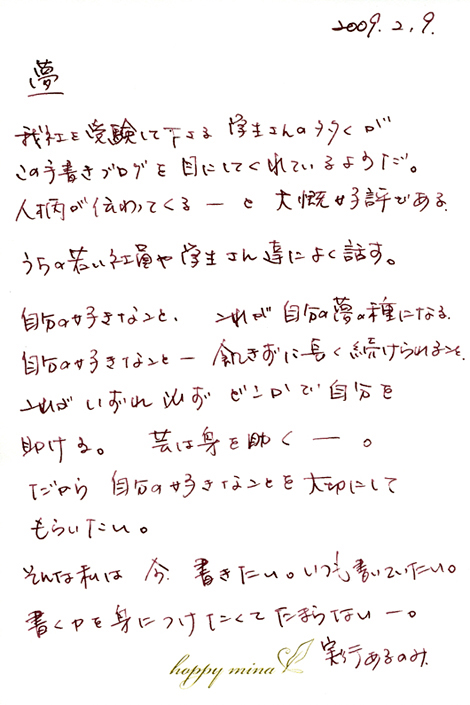 2009.2.9.
夢
我社を受験して下さる 学生さんの多くが
この手書きブログを目にしてくれているようだ。
人柄が伝わってくる ー と 大概好評である
うちの若い社員や学生さん達によく話す。
自分の好きなこと、これが自分の夢の種になる
自分の好きなことー飽きずに長く続けられること、
これが いずれ 必ず どこかで自分を
助ける。 芸は身を助く ー 。
だから 自分の好きなことを大切にして
もらいたい。
そんな私は 今 書きたい。いつも書いていたい。
書く力を身につけたくてたまらない ー。
実行あるのみ
happy mina